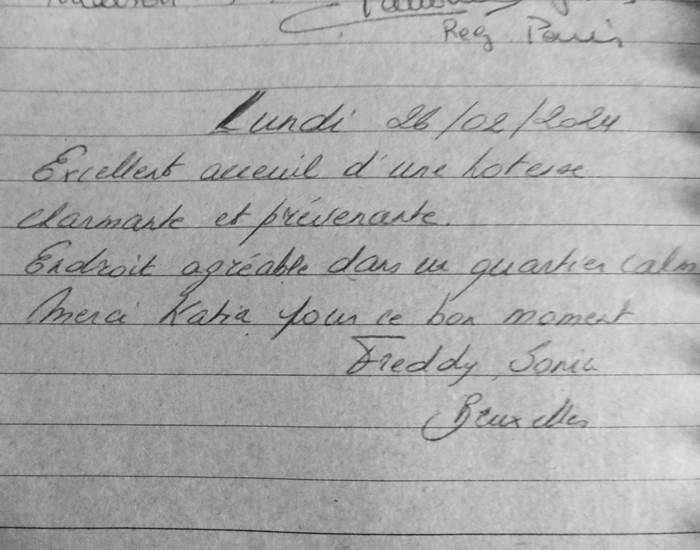 Reg Paris
Lundi 26/02/2024
Excellent acceuil d'une hotesse
charmante et prévenante.
Endroit agréable dans un quartier calm
Merci Katia pour ce bon moment
Freddy, Sonia
Bruxelles